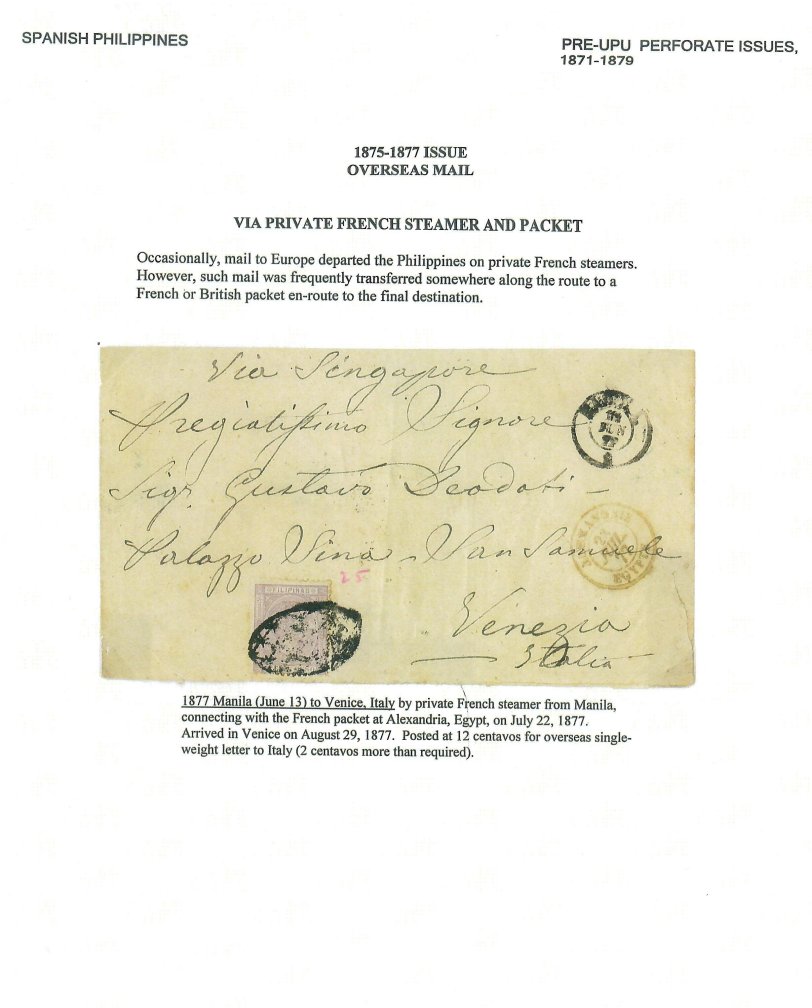 SPANISH PHILIPPINES
PRE-UPU PERFORATE ISSUES,
1871-1879
1875-1877 ISSUE
OVERSEAS MAIL
VIA PRIVATE FRENCH STEAMER AND PACKET
Occasionally, mail to Europe departed the Philippines on private French steamers.
However, such mail was frequently transferred somewhere along the route to a
French or British packet en-route to the final destination.
Via Singapore
Pregiatissimo Signore
Sigr Gustavo Deodati -
Palazzo Sina - San Samuele
25
FILIPINAS
Venezia
Italia
JUN
77
EGYPTE
1877 Manila (June 13) to Venice, Italy by private French steamer from Manila,
connecting with the French packet at Alexandria, Egypt, on July 22, 1877.
Arrived in Venice on August 29, 1877. Posted at 12 centavos for overseas single-
weight letter to Italy (2 centavos more than required).